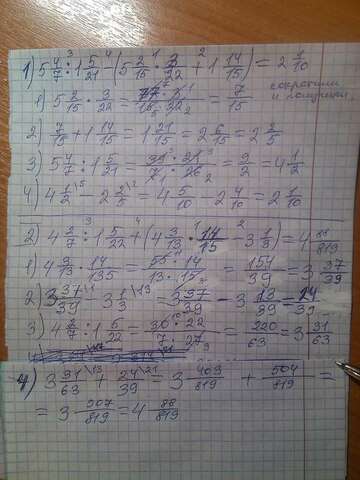 1) 5 4/7 : 1 5/21 - (5 2/15 · 3/22 + 1 14/15) = 2 1/10
1) 5 2/15 · 3/22 = 77 · 3 / 15 · 22 = 7/15
сократили
2) 7/15 + 1 14/15 = 1 21/15 = 2 6/15 = 2 2/5
3) 5 4/7 : 1 5/21 = 39 · 21 / 7 · 26 = 9/2 = 4 1/2
4) 4 1/2 \5 - 2 2/5 \2 = 4 5/10 - 2 4/10 = 2 1/10
2) 4 2/7 : 1 5/22 + (4 3/13 · 14/15 - 3 1/3) = 4 88/819
1) 4 3/13 · 14/15 = 55 · 14 / 13 · 15 = 154/39 = 3 37/39
2) 3 37/39 \1 - 3 1/3 \13 = 3 37/39 - 3 13/39 = 24/39
3) 4 2/7 : 1 5/22 = 30 · 22 / 7 · 27 = 220/63 = 3 31/63
4) 3 31/63 \13 + 24/39 \21 = 3 403/819 + 504/819 =
= 3 907/819 = 4 88/819